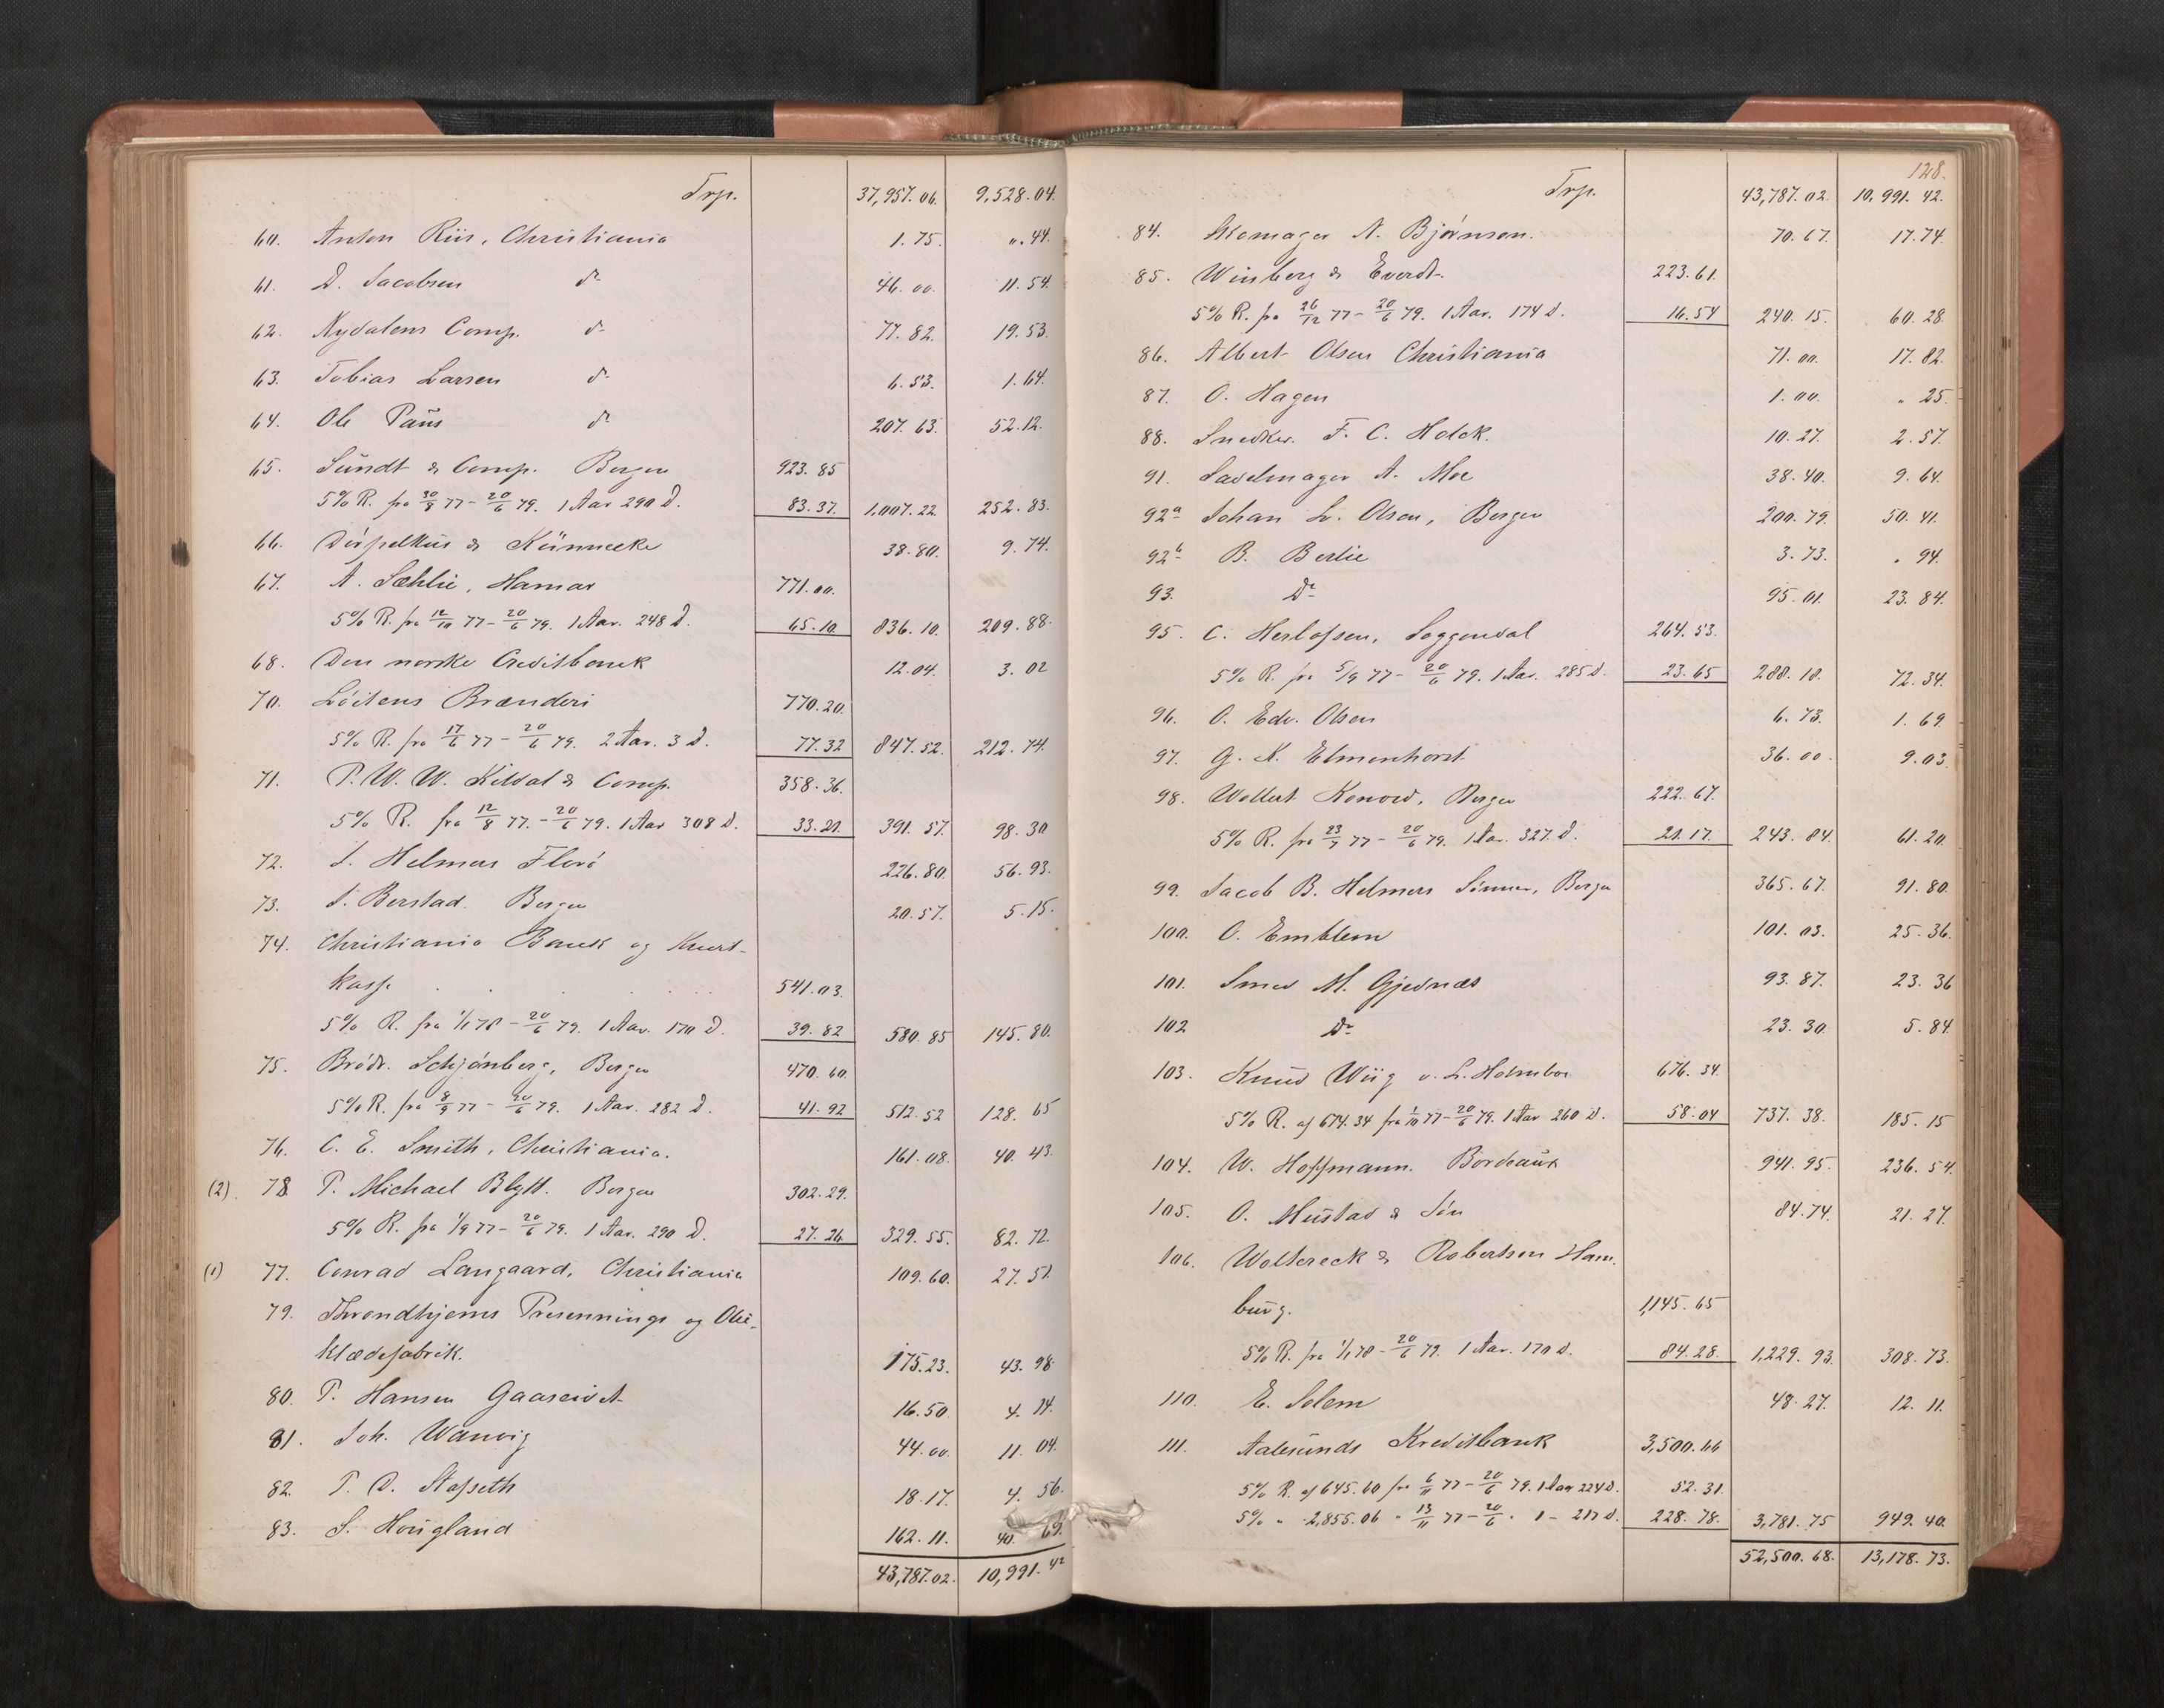 Trp. 37,957.06. 9,528.04.
60. Anton Riis, Christiania 1.75. ". 44.
61. D. Jacobsen do 46.00. 11.54.
62. Nydalens Comp. do 77.82. 19.53.
63. Tobias Larsen do 6.53. 1.64.
64. Ole Paus do 207.63. 52.12.
65. Sundt & Comp. Bergen 923.85
5% R. fra 30/8 77 - 20/6 79. 1 Aar 290 D. 83.37. 1,007.22. 252.83.
66. & Künnecke 38.80. 9.74.
67. A. Sæhlie, Hamar 771.00.
5% R. fra 12/10 77 - 20/6 79. 1 Aar. 248 D. 65.10. 836.10. 209.88.
68. Den norske Creditbank 12.04. 3.02
70. Löitens Brænderi 770.20.
5% R. fra 17/6 77 - 20/6 79. 2 Aar. 3 D. 77.32 847.52. 212.74.
71. P. W. W. Kildal & Comp. 358.36.
5% R. fra 12/8 77. - 20/6 79. 1 Aar 308 D. 33.21. 391.57. 98.30
72. J. Helmers Florö 226.80. 56.93.
73. J. Berstad. Bergen 20.57. 5.15.
74. Christiania Bank og Kredit-
kasse . . . . . 541.03.
5% R. fra 1/1 78 - 20/6 79. 1 Aar. 170 D. 39.82 580.85 145.80.
75. Brödr. Schjönberg, Bergen 470.60.
5% R. fra 8/9 77 - 20/6 79. 1 Aar. 282 D. 41.92 512.52 128.65
76. C. E. Smith, Christiania. 161.08. 40.43.
(2). 78 P. Michael Blytt. Bergen 302.29.
5% R. fra 1/9 77 - 20/6 79. 1 Aar. 290 D. 27.26 329.55. 82.72.
(1) 77. Conrad Langaard, Christiania 109.60. 27.51.
79. Throndhjems Presennings og Olie-
klædefabrik. 175.23. 43.98
80. P. Hansen Gaaseidet 16.50 4.14.
81. Joh. Wanvig 44.00. 11.04.
82. P. O. Stafseth 18.17. 4.56.
83. S. Hougland 162.11. 40.69.
43,787.02. 10,991.42
128.
Trp. 43,787.02. 10,991.42.
84. N. Björnsen. 70.67. 17.74.
85. Winberg & Everdt. 223.61.
5% R. fra 26/12 77 - 20/6 79. 1 Aar. 174 D. 16.54 240.15. 60.28
86. Albert Olsen Christiania 71.00. 17.82.
87. O. Hagen 1.00. " 25.
88. Snedker F. C. Holck. 10.27. 2.57.
91. Sadelmager A. Moe 38.40. 9.64.
92a Johan L. Olsen, Bergen 200.79. 50.41.
92b B. Berlie 3.73. . 94.
93. Do 95.01. 23.84.
95. C. Herlofsen, Soggendal 264.53.
5% R. fra 5/9 77 - 20/6 79. 1 Aar. 285 D. 23.65 288.18. 72.34.
96. O. Edv. Olsen 6.73. 1.69.
97. G. K. Elmenhorst 36.00. 9.03.
98. Wollert Konow, Bergen 222.67.
5% R. fra 23/7 77 - 20/6 79. 1 Aar. 327. D. 21.17. 243.84. 61.20.
99. Jacob B. Helmers Sönner, Bergen 365.67. 91.80.
100. O. Emblem 101.03. 25.36.
101. Smed M. Gjednæs 93.87. 23.36
102 Do 23.30. 5.84.
103. Knud Wiig v. L. Holmboe 676.34.
5% R. af 674.34 fra 1/10 77 - 20/6 79. 1 Aar 260 D. 58.04 737.38. 185.15
104. W. Hoffmann. Bordeaux 941.95. 236.54.
105. O. Mustad & Sön 84.74. 21.27.
106. Woltereck & Robertson Ham-
burg. 1,145.65
5% R. fra 1/1 78 - 20/6 79. 1 Aar. 170 D. 84.28. 1,229.93. 308.73.
110. E. Solem 48.27. 12.11.
111. Aalesunds Kreditbank 3,500.66
5% R. af 645.60 fra 6/11 77 - 20/6 79. 1 Aar 224 D. 52.31.
5% " 2,855.06 " 13/11 77 - 20/6 . 1 - 217 D. 228.78. 3,781.75 949.40.
52,500.68. 13,178.73.